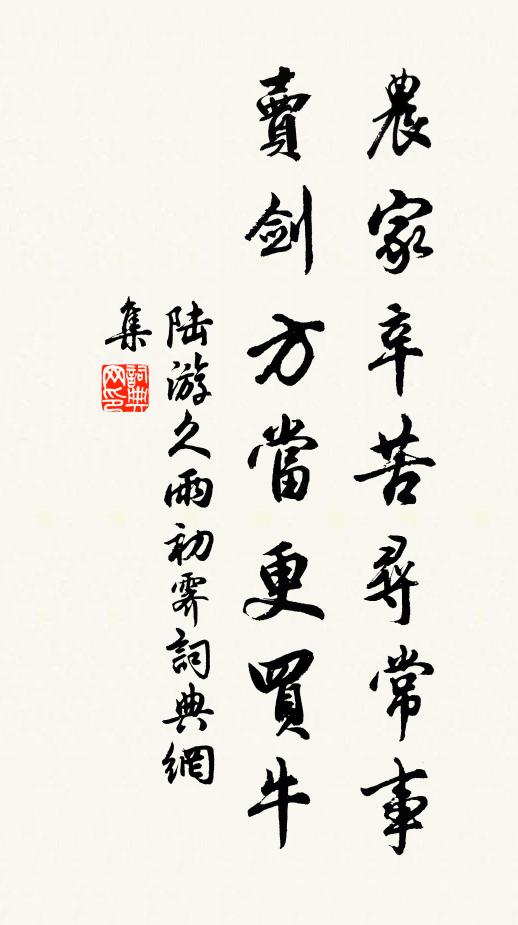 農家辛苦尋常事
賣劍方當更買牛
陸游久雨初霽詞典網
集
詞典
网印